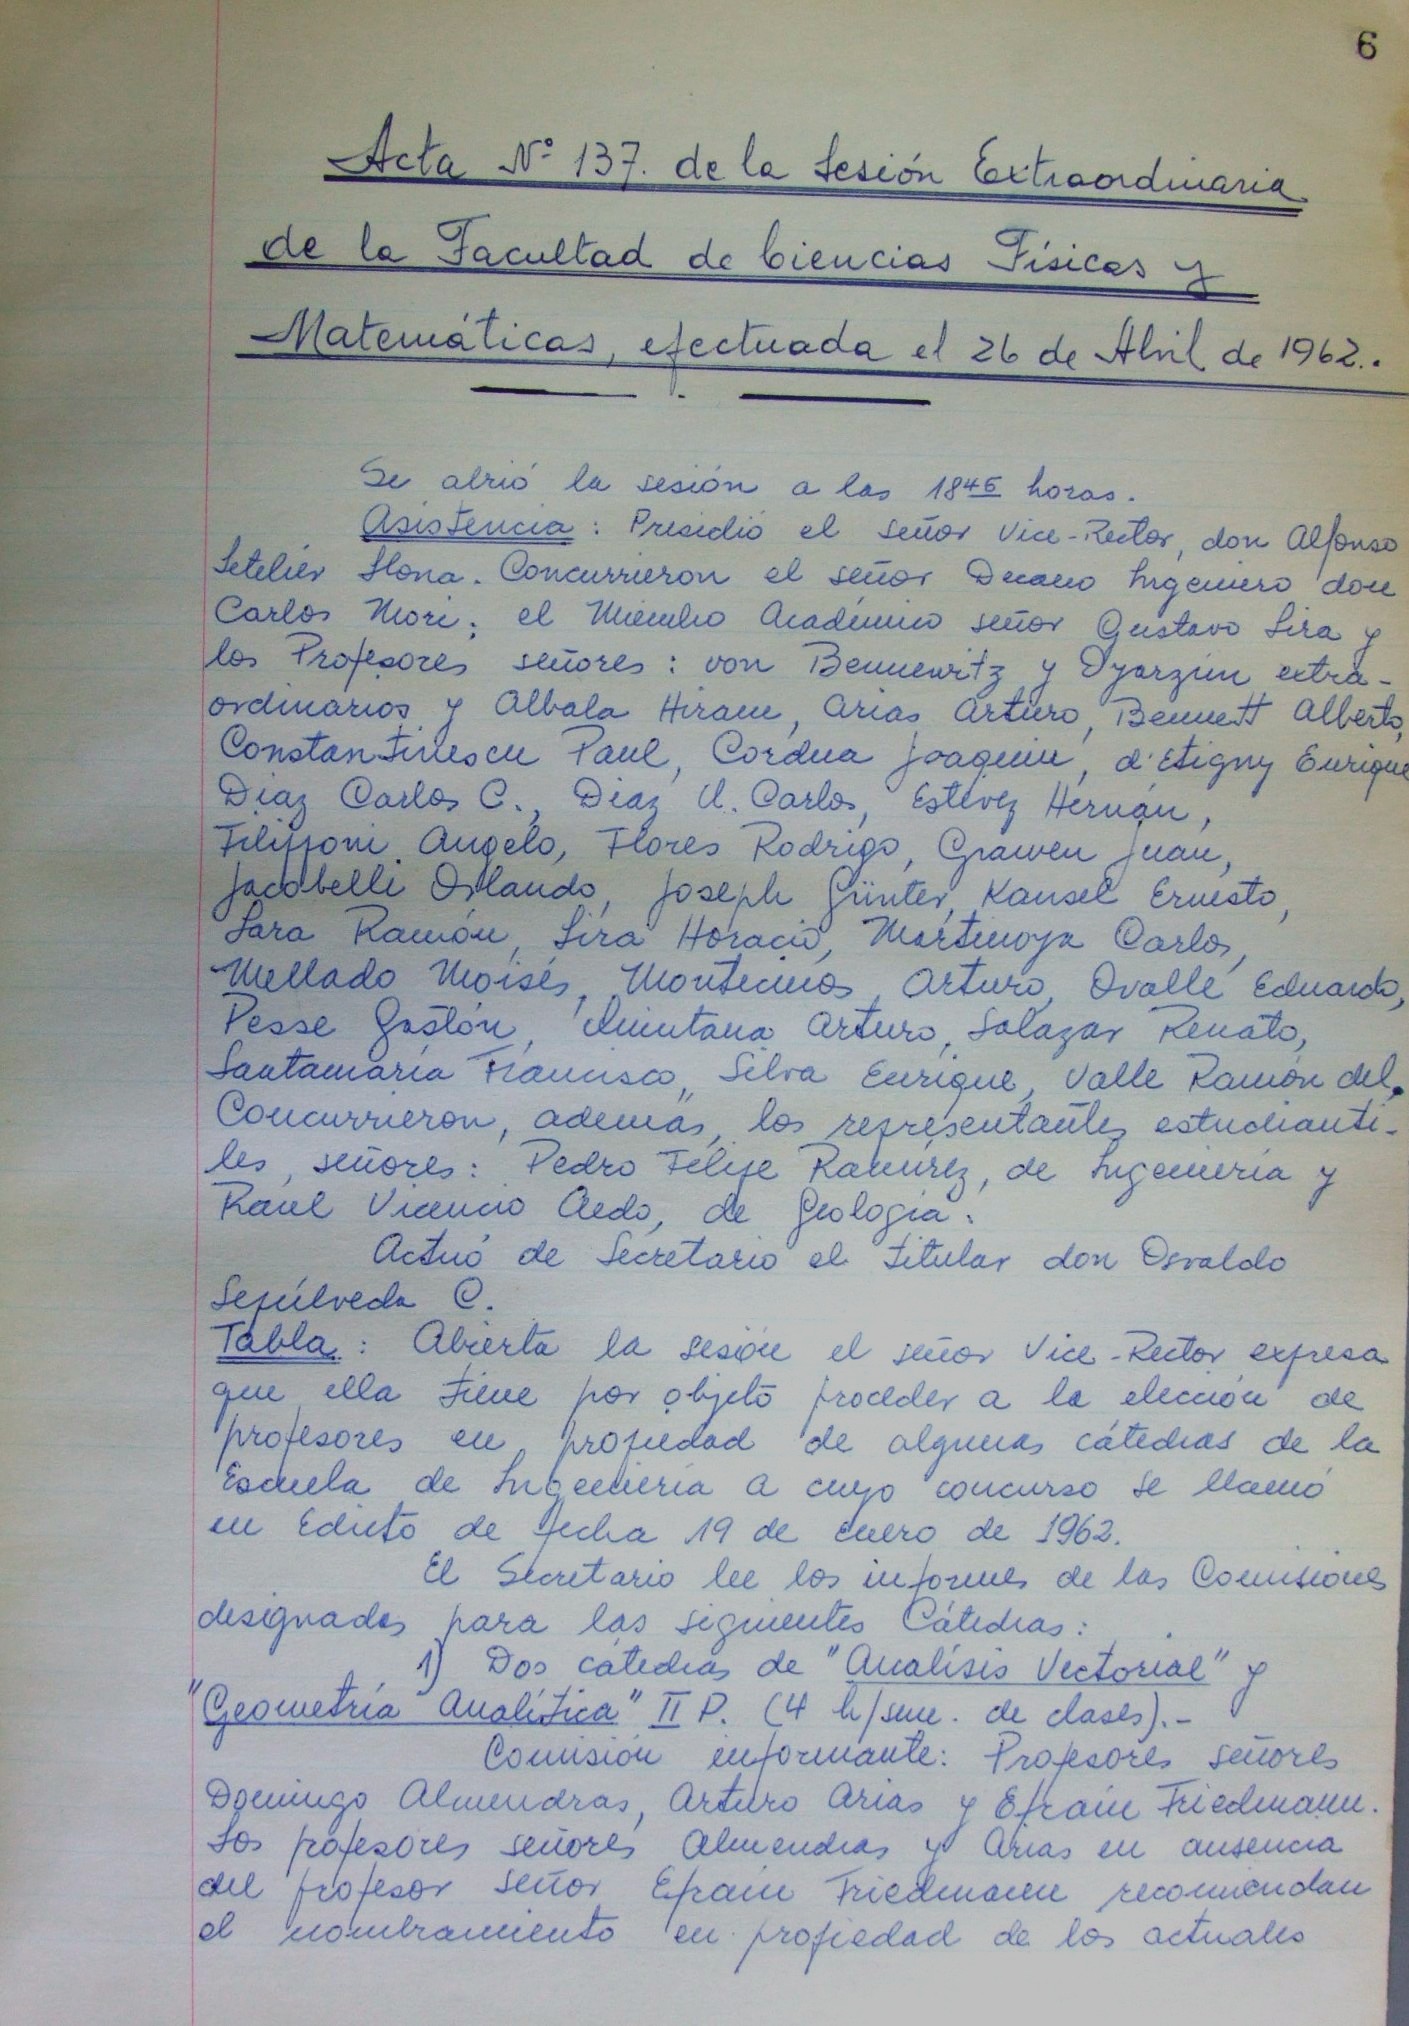 6
Acta Nº 137. de la Sesión Extraordinaria
de la Facultad de Ciencias Físicas y
Matemáticas, efectuada el 26 de Abril de 1962..
Se abrió la sesión a las 18 45 horas.
Asistencia: Presidió el señor Vice-Rector, don Alfonso
Letelier Llona. Concurrieron el señor Decano Ingeniero don
Carlos Mori; el Miembro Académico señor Gustavo Lira y
los Profesores señores: von Bennewitz y Oyarzún extra-
ordinarios y Albala Hiram, Arias Arturo, Bennett Alberto,
Constantinescu Paul, Cordua Joaquin, d'Etigny Enrique
Diaz Carlos C., Diaz U. Carlos, Estévez Hernán,
Filipponi Angelo, Flores Rodrigo, Grawen Juan,
Jacobelli Orlando, Joseph Günter, Kausel Ernesto,
Lara Ramón, Lira Horacio, Martinoya Carlos,
Mellado Moisés, Montecinos Arturo, Ovalle Eduardo,
Pesse Gastón, Quintana Arturo, Salazar Renato,
Santamaría Francisco, Silva Enrique, Valle Ramón del.
Concurrieron, además, los representantes estudianti-
les, señores: Pedro Felipe Ramírez, de Ingeniería y
Raúl Vicencio Aedo, de Geología.
Actuó de Secretario el titular don Osvaldo
Sepúlveda C.
Tabla: Abierta la sesión el señor Vice-Rector expresa
que ella tiene por objeto proceder a la elección de
profesores en propiedad de algunas cátedras de la
Escuela de Ingeniería a cuyo concurso se llamó
en Edicto de fecha 19 de enero de 1962.
El Secretario lee los informes de las Comisiones
designadas para las siguientes Cátedras:
1) Dos cátedras de "Analísis Vectorial" y
"Geometría Analítica" II P. (4 h/sem. de clases).-
Comisión informante: Profesores señores
Domingo Almendras, Arturo Arias y Efraín Friedmann.
Los profesores señores Almendras y Arias en ausencia
del profesor señor Efraín Friedmann recomiendan
el nombramiento en propiedad de los actuales